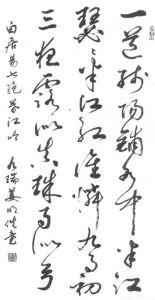 一道殘陽鋪水中半江
瑟瑟半江紅誰憐九月初
三夜露似真珠月似弓
白居易七绝暮江吟